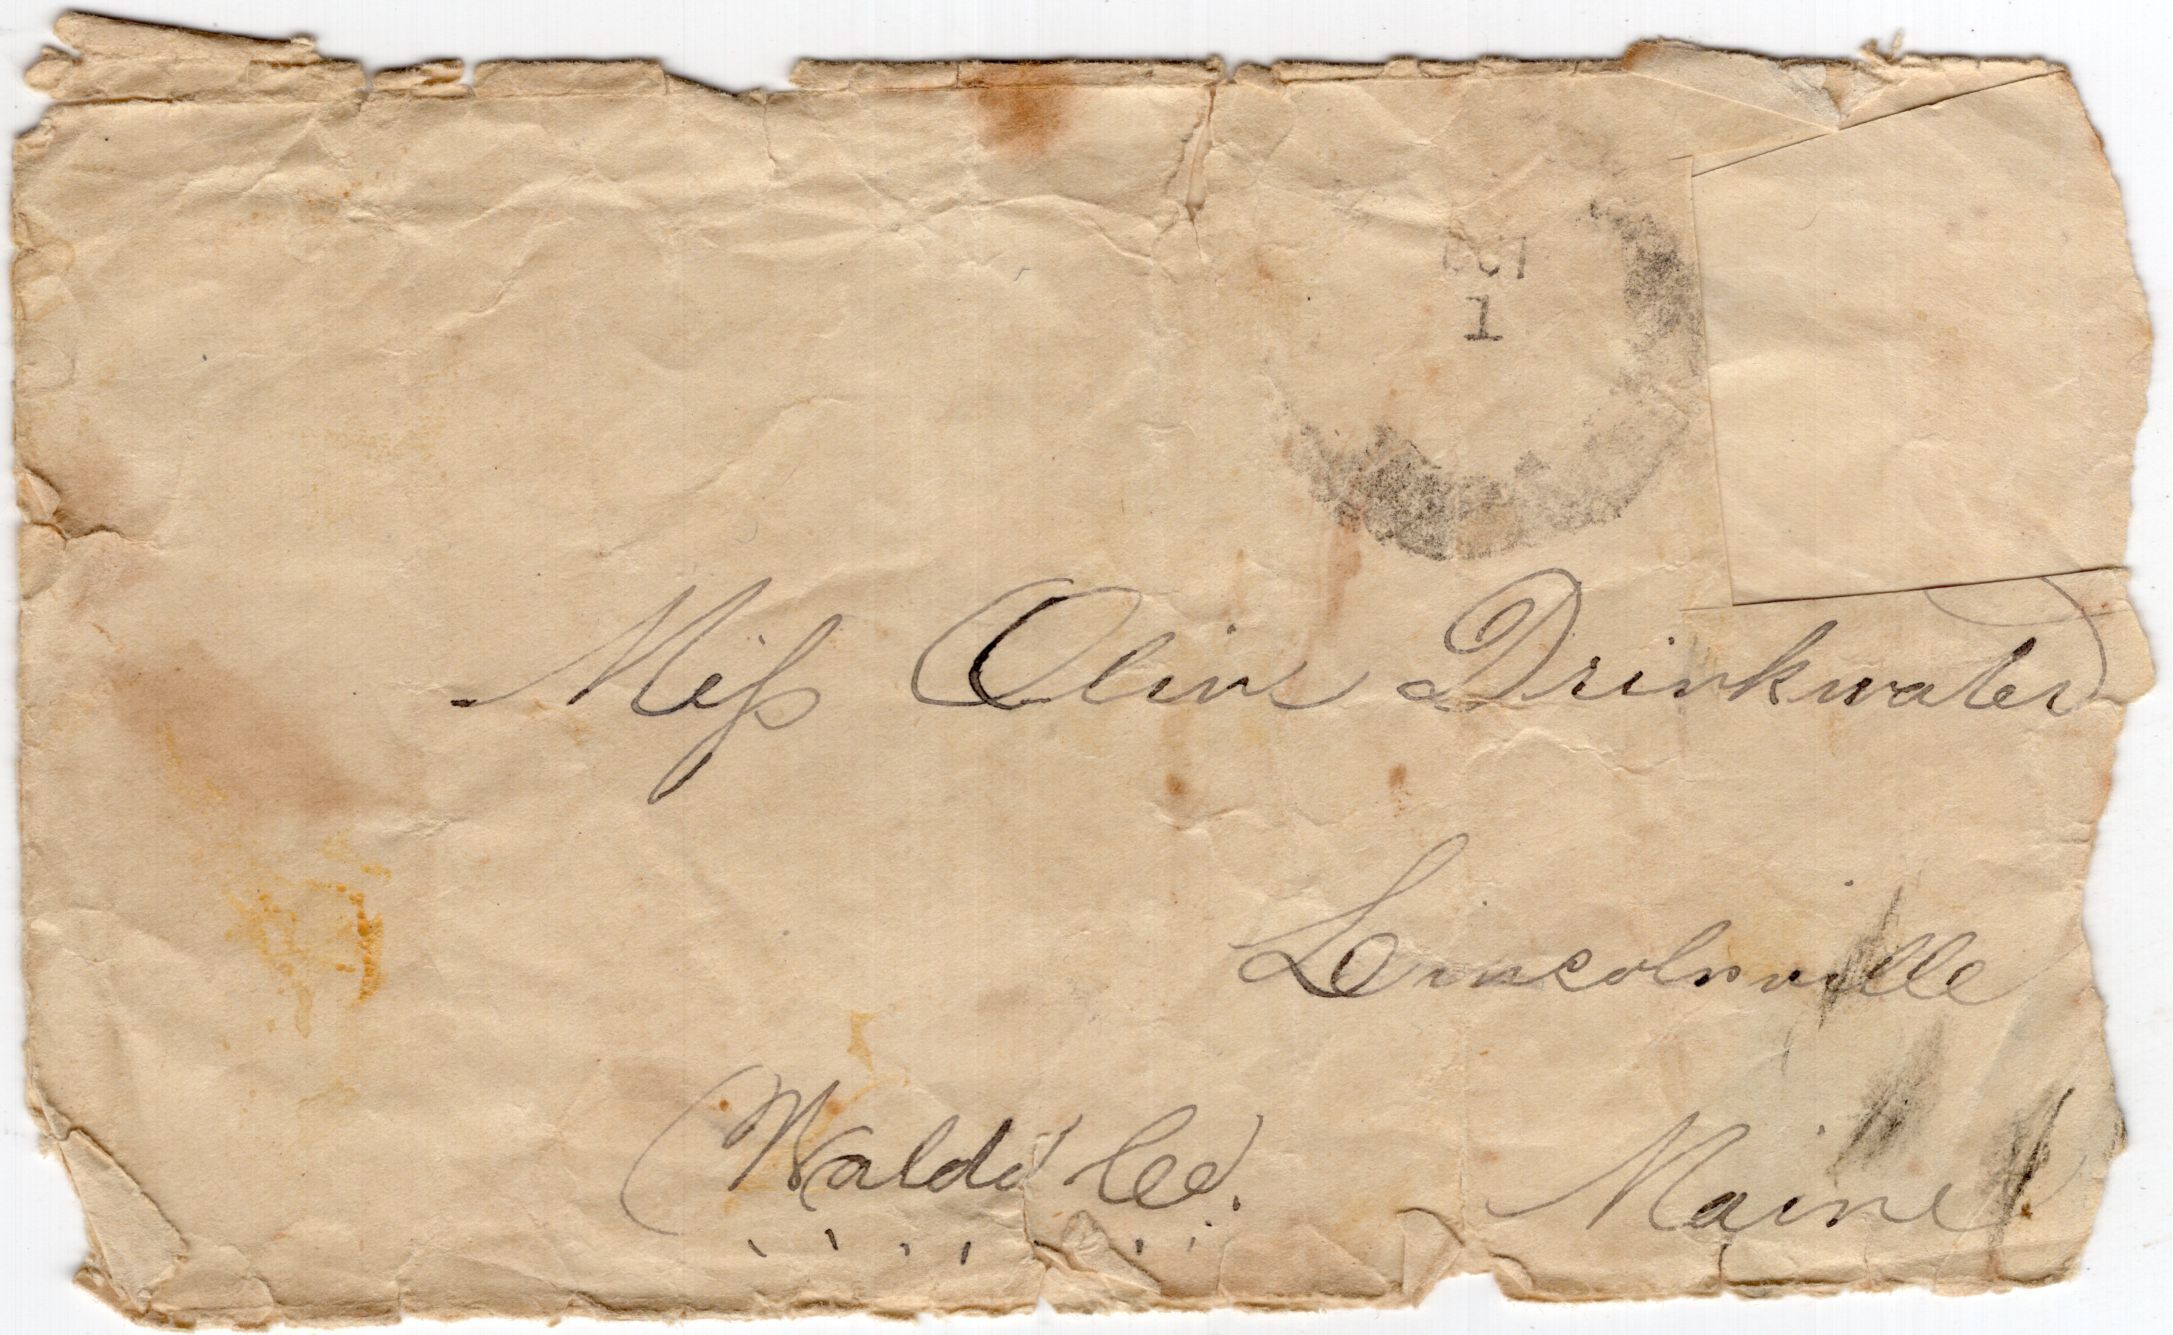 OCT
1
Miss Olive Drinkwater
Lincolnville
Waldo Co.
Maine